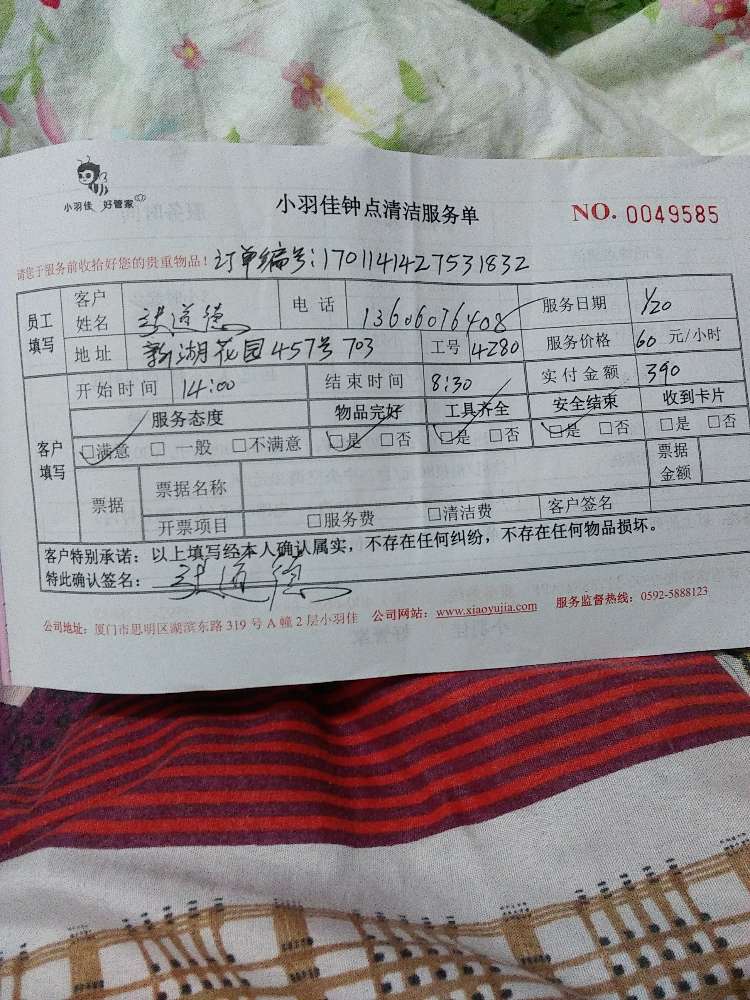 小羽佳 好管家
小羽佳钟点清洁服务单
NO. 0049585
请您于服务前收拾好您的贵重物品！订单编号：1701141427531832
员工填写 客户姓名 张道德 电话 13606076408 服务日期 1/20
地址 新湖花园457号703 工号 4280 服务价格 60 元/小时
客户填写 开始时间 14:00 结束时间 8:30 实付金额 390
服务态度 物品完好 工具齐全 安全结束 收到卡片
□满意 □一般 □不满意 □是 □否 □是 □否 □是 □否 □是 □否
票据 票据名称 票据金额
开票项目 □服务费 □清洁费 客户签名
客户特别承诺：以上填写经本人确认属实，不存在任何纠纷，不存在任何物品损坏。
特此确认签名：张道德
公司地址：厦门市思明区湖滨东路 319 号 A 幢 2 层小羽佳 公司网站：www.xiaoyujia.com 服务监督热线：0592-5888123